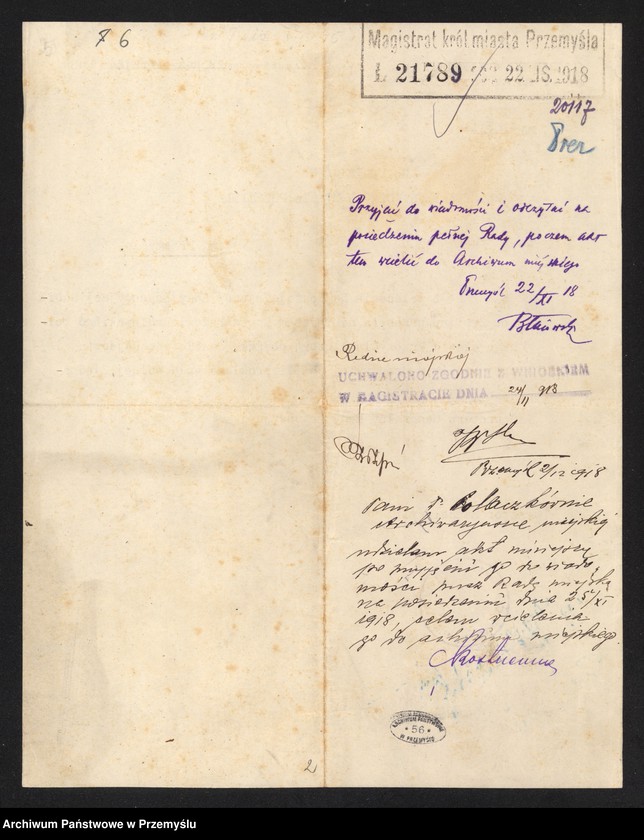 76
Magistrat król. miasta Przemyśla
L 21789 22 LIS. 1918
20117
Prez
Przyjąć do wiadomości i odczytać na
posiedzeniu pełnej Rady, poczem akt
ten wcielić do Archiwum miejskiego
Przemyśl 22/XI 18
Radzie miejskiej
UCHWALONO ZGODNIE Z WNIOSKIEM
W MAGISTRACIE DNIA 24/11 918
Przemyśl 2/12 1918
Pani Dr Polaczkównie
Archiwaryuszce miejskiej
udzielam akt niniejszy
po przyjęciu go do wiado
mości przez Radę miejską
na posiedzeniu dnia 25/XI
1918, celem wcielenia
go do archiwum miejskiego.
ARCHIWUM PAŃSTWOWE
56
W PRZEMYŚLU
2
Archiwum Państwowe w Przemyślu